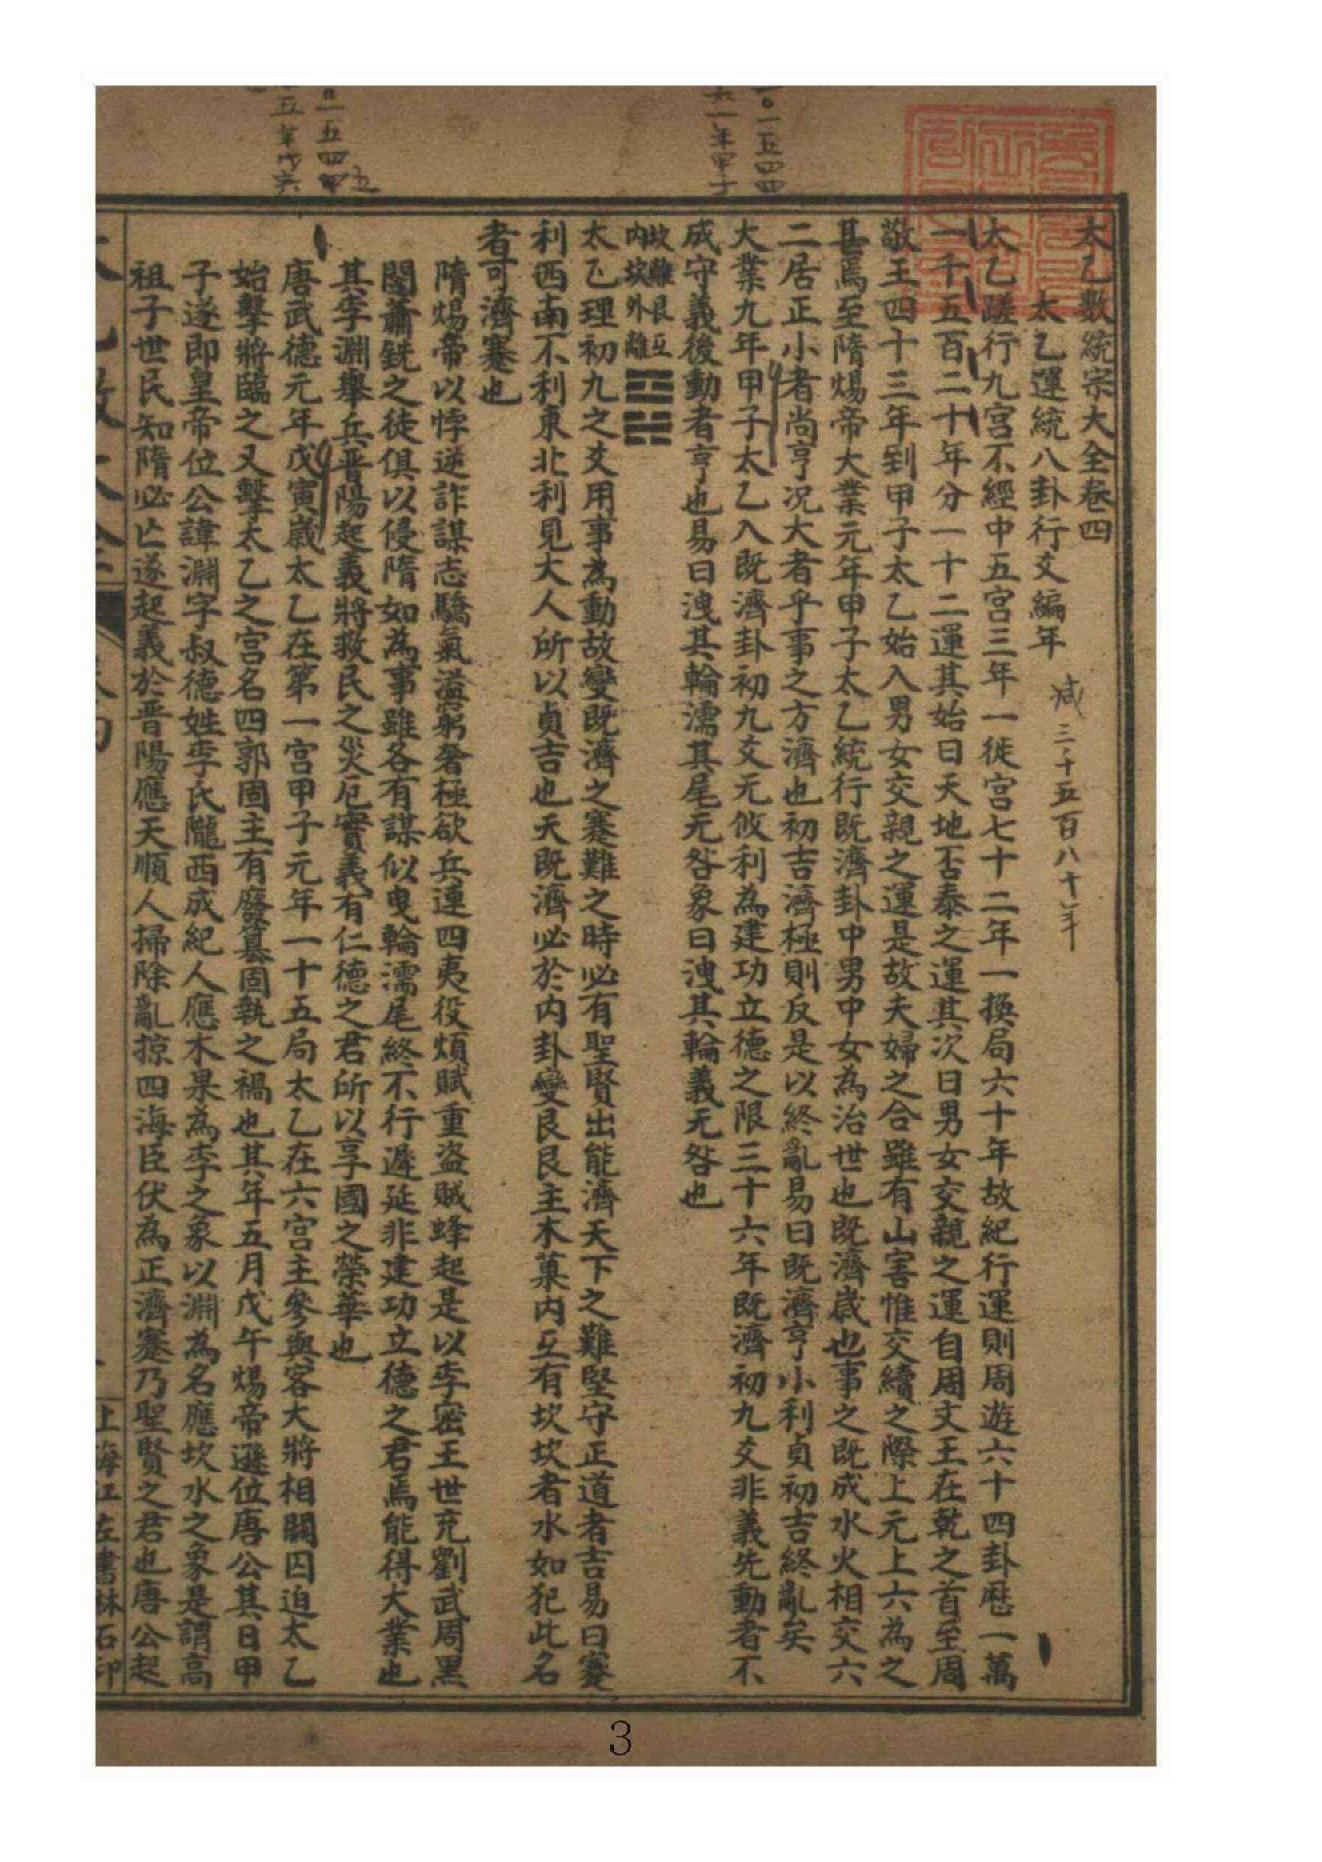 太乙數統宗大全卷四
太乙運統八卦行爻編年
減三千五百八十年
太乙蹉行九宮不經中五宮三年一徙宮七十二年一換局六十年故紀行運則周遊六十四卦歷一萬
一千五百二十年分一十二運其始曰天地否泰之運其次曰男女交親之運自周文王在乾之首至周
敬王四十三年到甲子太乙始入男女交親之運是故夫婦之合雖有山害惟交續之際上元上六為之
甚焉至隋煬帝大業元年甲子太乙統行既濟卦中男中女為治世也既濟歲也事之既成水火相交六
二居正小者尚亨況大者乎事之方濟也初吉濟極則反是以終亂易曰既濟亨小利貞初吉終亂矣
大業九年甲子太乙入既濟卦初九爻无攸利為建功立德之限三十六年既濟初九爻非義先動者不
成守義後動者亨也易曰洩其輪濡其尾无咎象曰洩其輪義无咎也
坎離艮互
內坎外離
太乙理初九之爻用事為動故變既濟之蹇難之時必有聖賢出能濟天下之難堅守正道者吉易曰蹇
利西南不利東北利見大人所以貞吉也天既濟必於內卦變艮艮主木菓內互有坎坎者水如犯此名
者可濟蹇也
隋煬帝以悖逆詐謀志驕氣溢窮奢極欲兵連四夷役煩賦重盜賊蜂起是以李密王世充劉武周黑
闥蕭銑之徒俱以侵隋如為事雖各有謀似曳輪濡尾終不行遲延非建功立德之君焉能得大業也
其李淵舉兵晋陽起義將救民之災厄實義有仁德之君所以享國之榮華也
唐武德元年戊寅歲太乙在第一宮甲子元年一十五局太乙在六宮主參與客大將相關囚迫太乙
始擊將臨之又擊太乙之宮名四郭固主有廢篡固執之禍也其年五月戊午煬帝遜位唐公其日甲
子遂即皇帝位公諱淵字叔德姓李氏隴西成紀人應木果為李之象以淵為名應坎水之象是謂高
祖子世民知隋必亡遂起義於晋陽應天順人掃除亂掠四海臣伏為正濟蹇乃聖賢之君也唐公起
上海江左書林石印
3